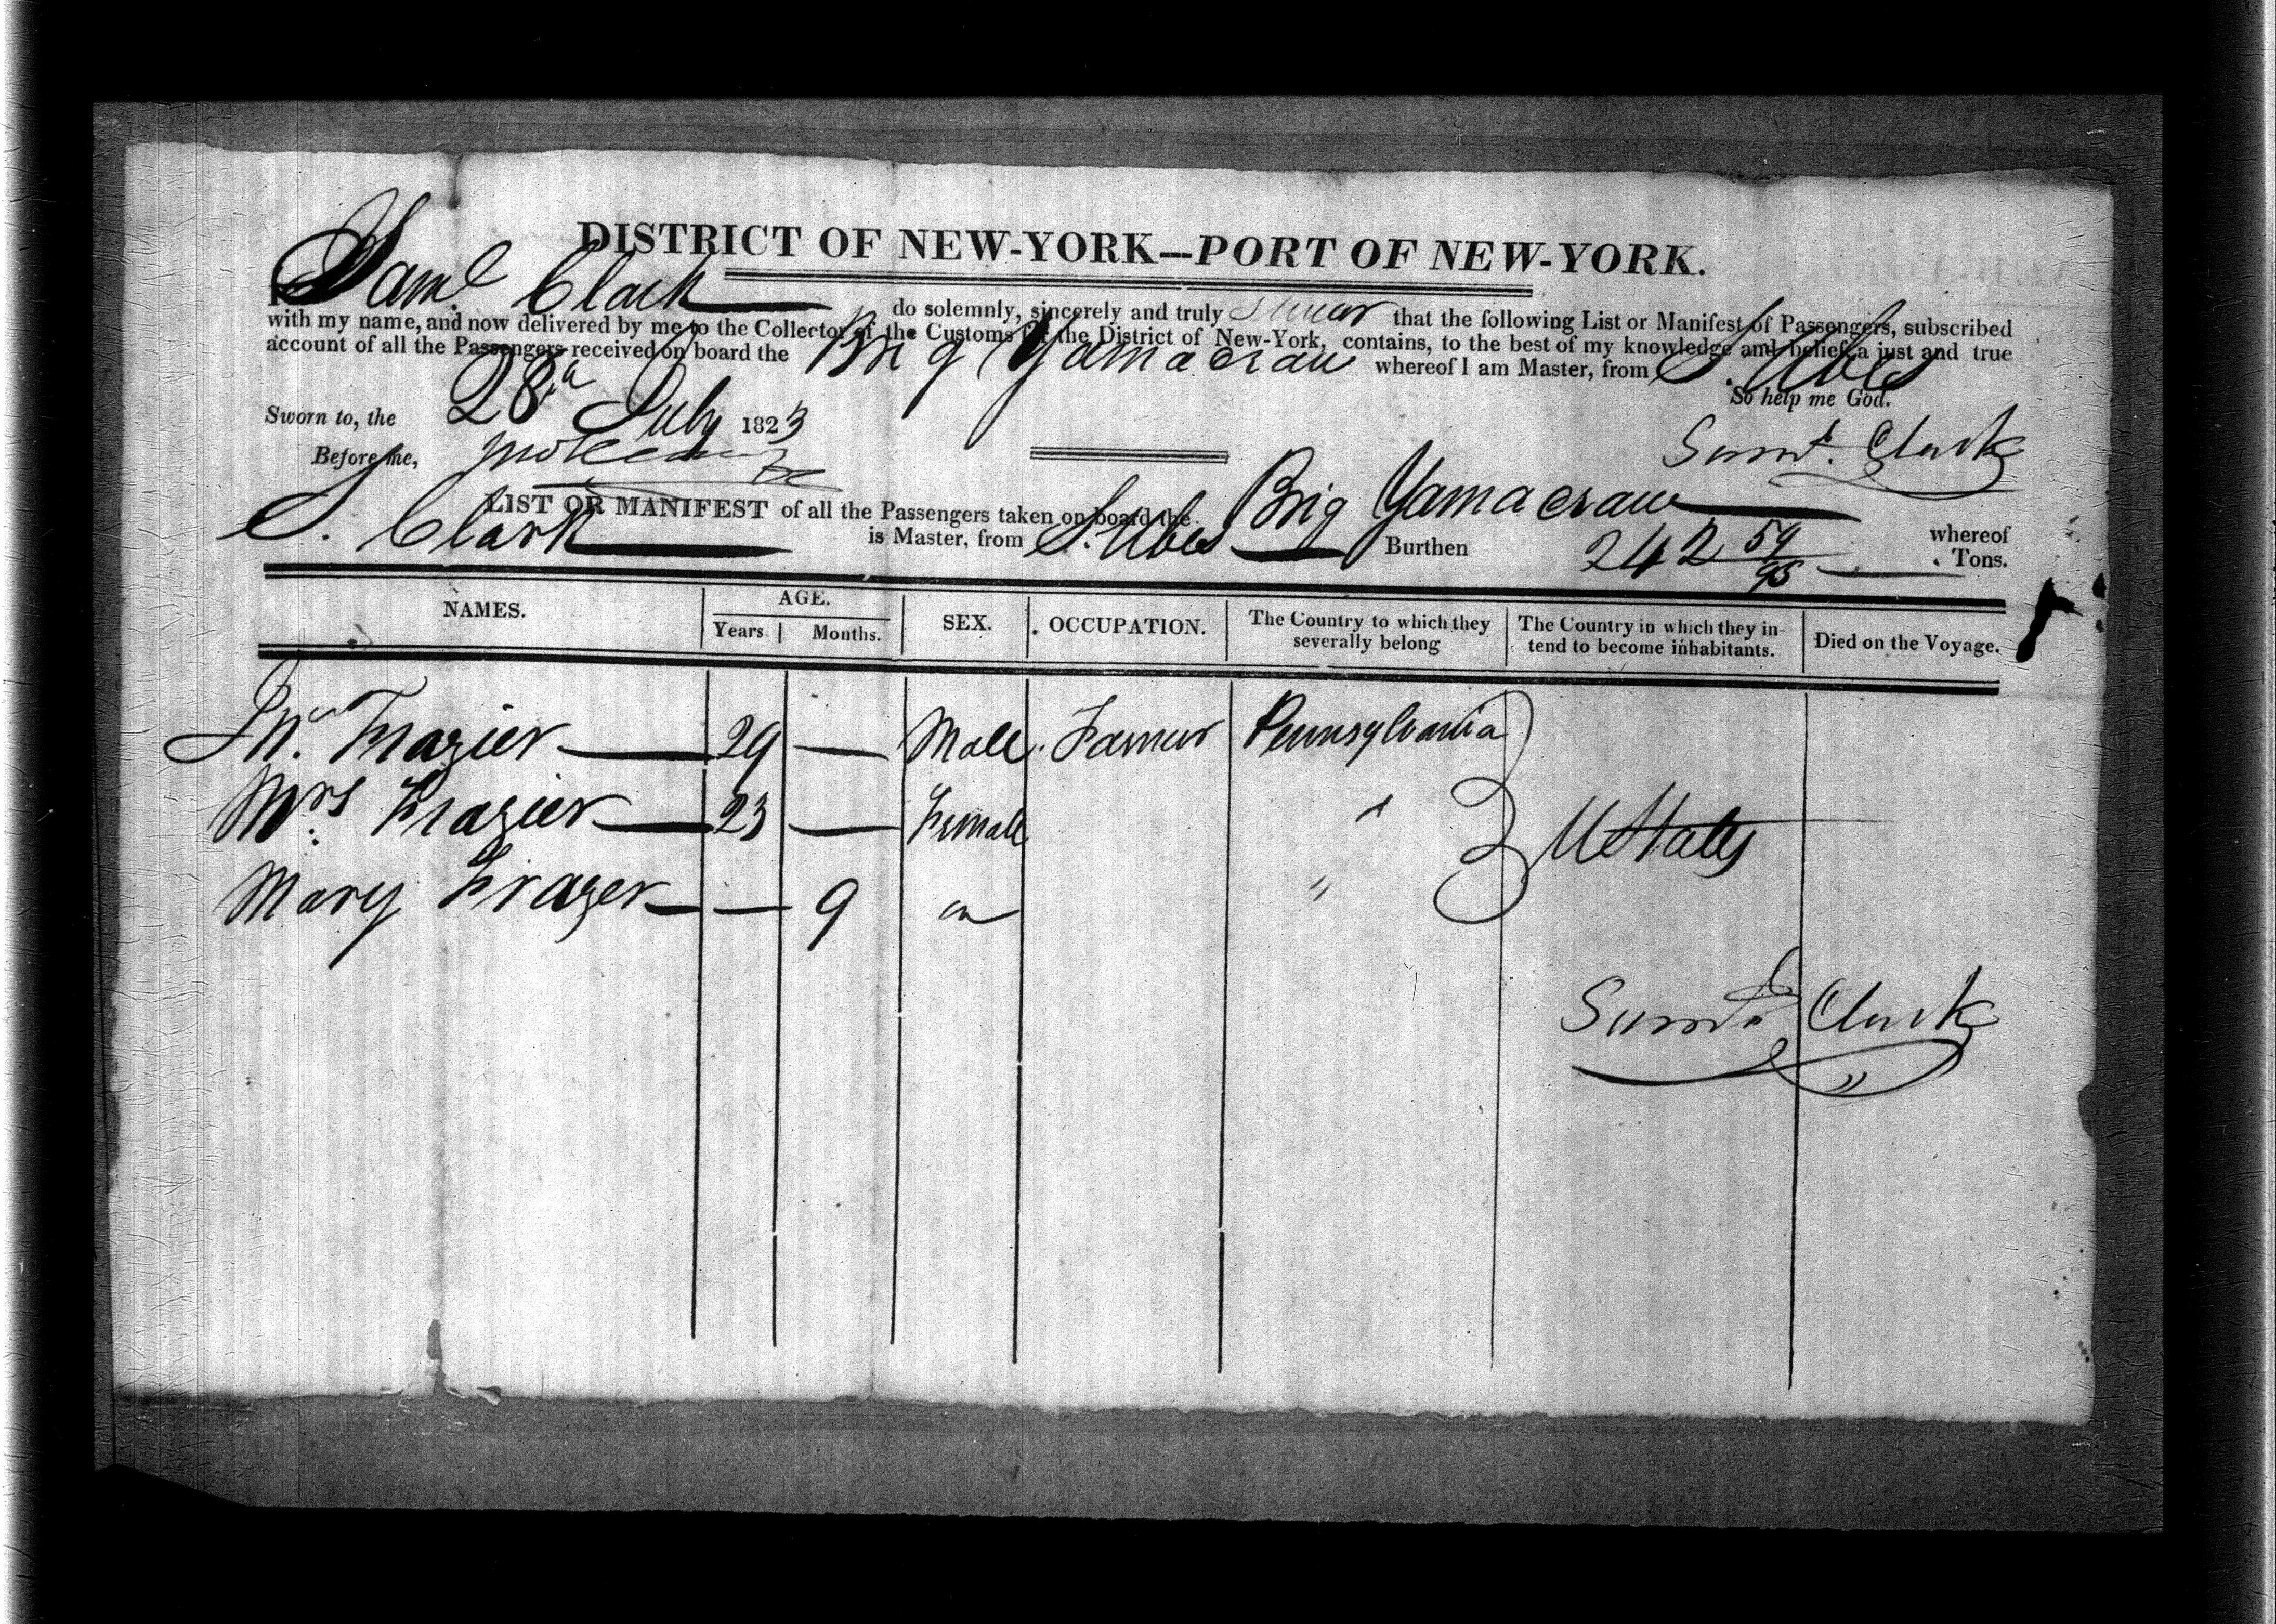 DISTRICT OF NEW-YORK—PORT OF NEW-YORK.
I Saml. Clark do solemnly, sincerely and truly swear that the following List or Manifest of Passengers, subscribed
with my name, and now delivered by me to the Collector of the Customs for the District of New-York, contains, to the best of my knowledge and belief, a just and true
account of all the Passengers received on board the Brig Yamacraw whereof I am Master, from S. Ubes
So help me God.
Sworn to, the 28th July 1823
Saml. Clark
Before me,
LIST OR MANIFEST of all the Passengers taken on board the Brig Yamacraw whereof
S. Clark is Master, from S. Ubes Burthen 242 59/95 Tons.
NAMES. AGE. Years. Months. SEX. OCCUPATION. The Country to which they severally belong The Country in which they intend to become inhabitants. Died on the Voyage.
Jno. Frazier 29 — Male Farmer Pennsylvania
Mrs. Frazier 23 — Female " U States
Mary Frazer — 9 "
Saml. Clark